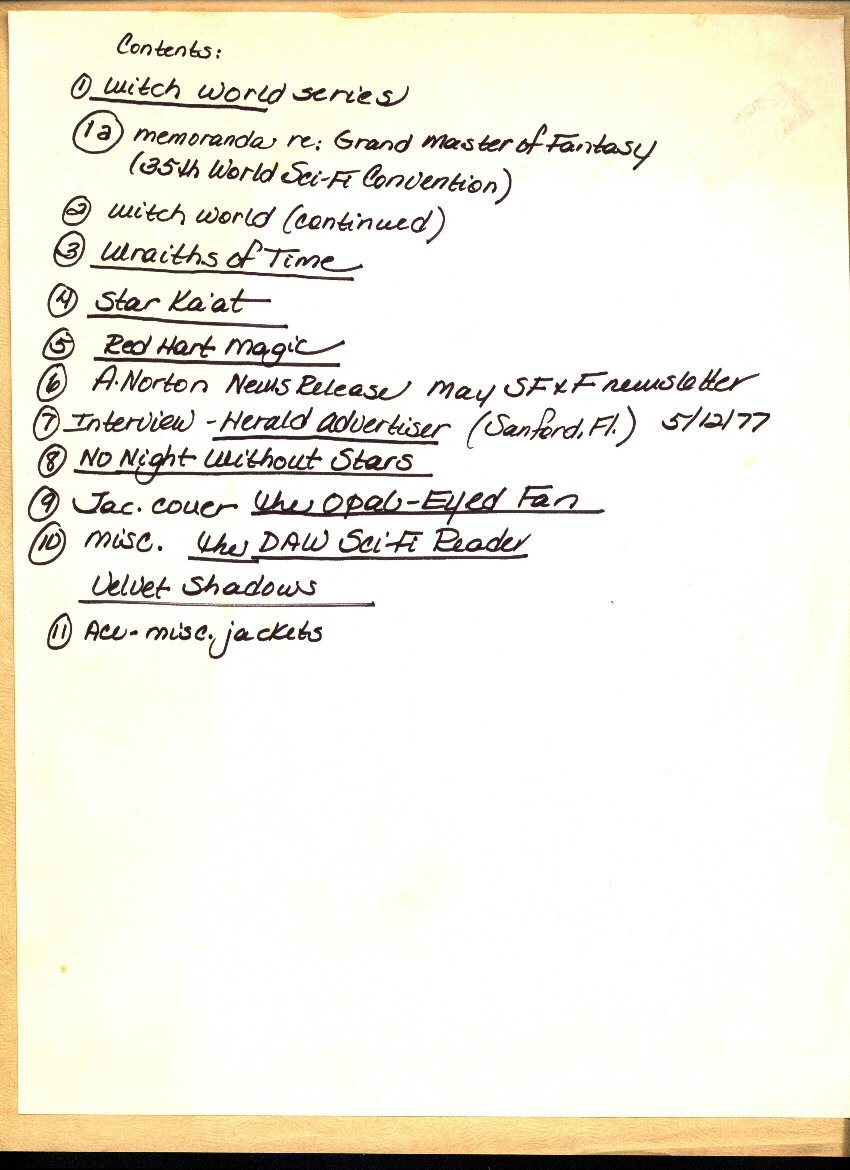 Contents:
① Witch World series
①a memoranda re: Grand Master of Fantasy
(35th World Sci-Fi Convention)
② Witch World (continued)
③ Wraiths of Time
④ Star Ka'at
⑤ Red Hart Magic
⑥ A. Norton News Release May SF & F newsletter
⑦ Interview - Herald Advertiser (Sanford, Fl.) 5/12/77
⑧ No Night Without Stars
⑨ Jac. cover The Opal-Eyed Fan
⑩ misc. The DAW Sci-Fi Reader
Velvet Shadows
⑪ Ace - misc. jackets